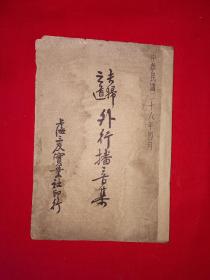 中華民國二十八年四月
之道
外行播音集
三友實業社印行